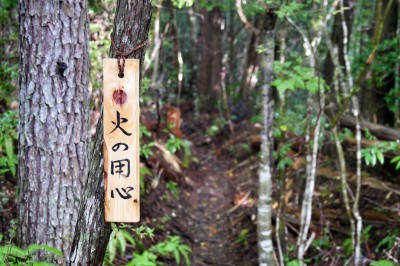 火の用心